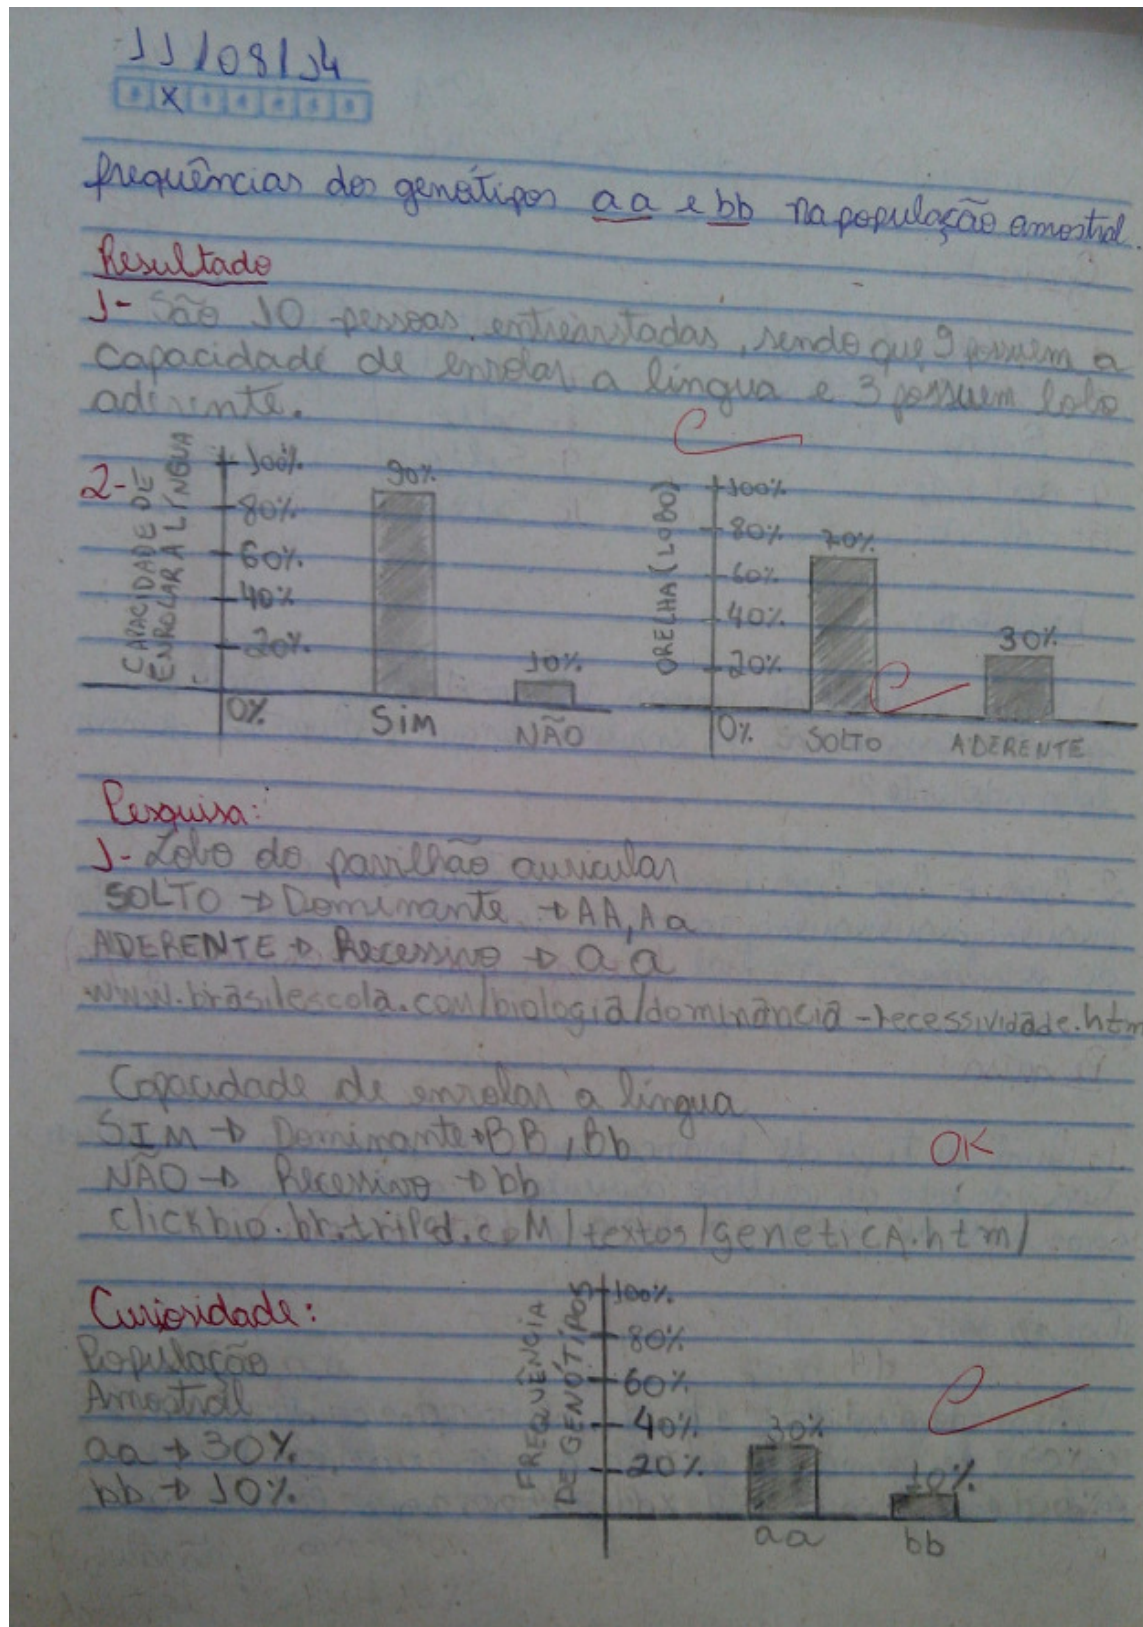 11/08/14
X
frequências dos genótipos aa e bb na população amostral.
Resultado
1- São 10 pessoas entrevistadas, sendo que 9 possuem a
capacidade de enrolar a língua e 3 possuem lobo
aderente.
2- CAPACIDADE DE ENROLAR A LÍNGUA
100%
80%
60%
40%
20%
0%
90%
SIM
10%
NÃO
ORELHA (LOBO)
100%
80%
60%
40%
20%
0%
70%
SOLTO
30%
ADERENTE
Pesquisa:
1- Lobo do pavilhão auricular
SOLTO → Dominante → AA, Aa
ADERENTE → Recessivo → aa
www.brasilescola.com/biologia/dominancia-recessividade.htm
Capacidade de enrolar a língua
SIM → Dominante → BB, Bb
OK
NÃO → Recessivo → bb
clickbio.br.tripod.coM/textos/geneticA.html
Curiosidade:
População
Amostral
aa → 30%
bb → 10%
FREQUÊNCIA
DE GENÓTIPOS
100%
80%
60%
40%
20%
30%
aa
10%
bb